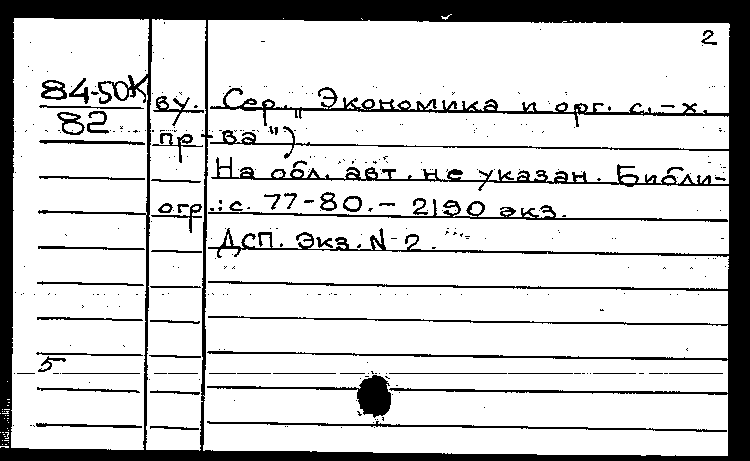 2
84-50К
82
ву. Сер. „Экономика и орг. с.-х.
пр-ва")
На обл. авт. не указан. Библи-
огр.: с. 77-80. - 2190 экз.
ДСП. Экз. N 2.
5